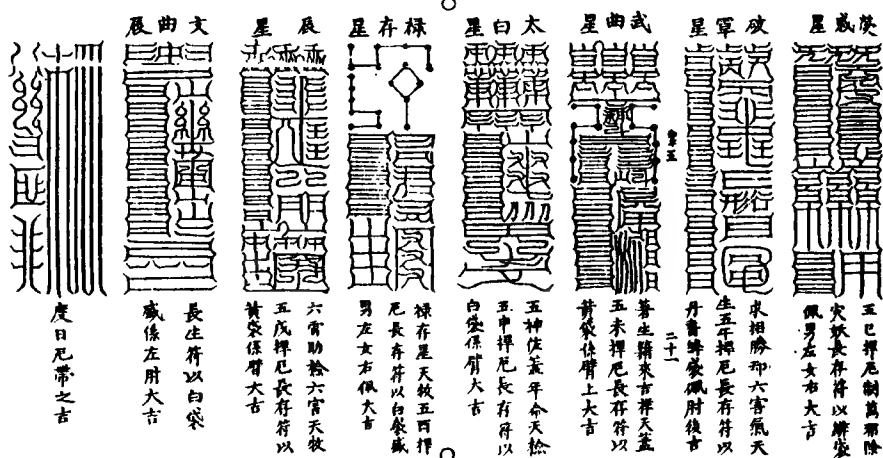 熒惑星
五巳捍厄制萬邪除
灾妖長存符以絳袋
佩男左女右大吉
破軍星
求相勝却六害氣天
生五午捍厄長存符以
丹書絳袋佩肘後吉
二十一
武曲星
善生籍來吉捍天蓋
五未捍厄長存符以
黃袋係臂上大吉
太白星
五神佐蓋年命天捡
五申捍厄長存符以
白袋係臂大吉
祿存星
祿存星天牧五酉捍
厄長存符以白袋盛
男左女右佩大吉
辰星
六宮助捡六宮天牧
五戌捍厄長存符以
黃袋係臂大吉
文曲辰
長生符以白袋
盛係左肘大吉
度日厄帶之吉